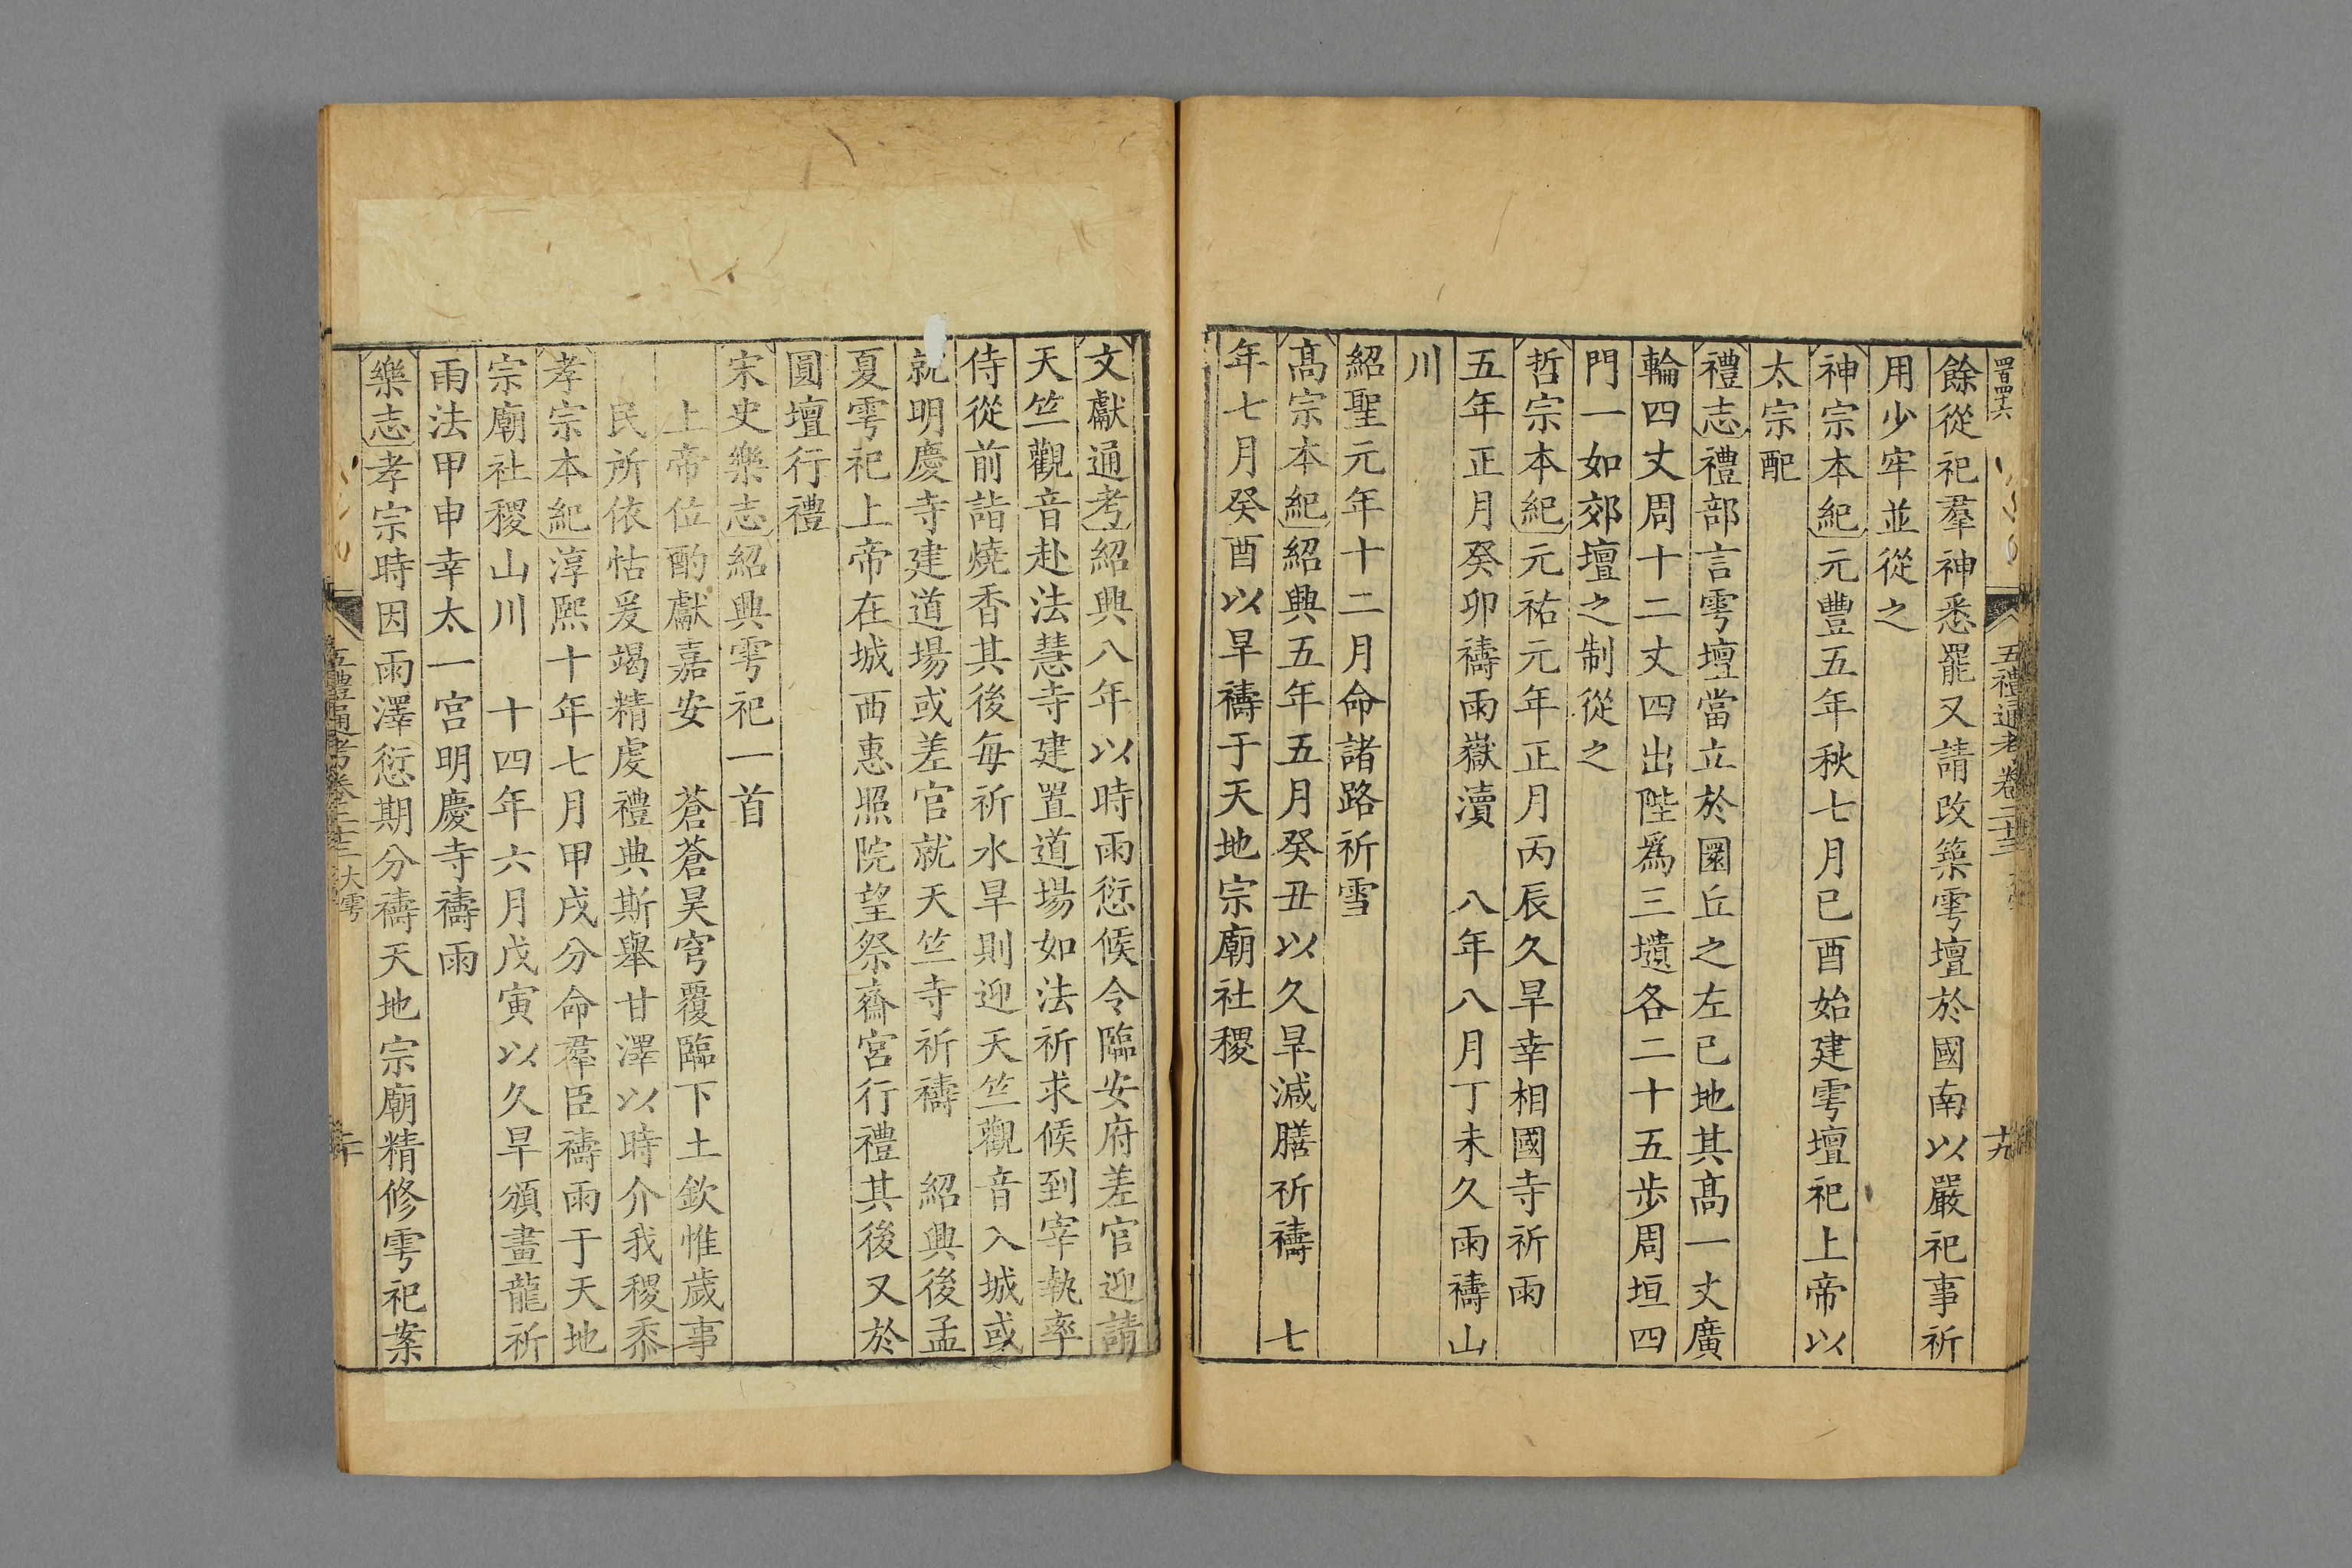 餘從祀羣神悉罷又請改築雩壇於國南以嚴祀事祈
用少牢並從之
神宗本紀元豐五年秋七月己酉始建雩壇祀上帝以
太宗配
禮志禮部言雩壇當立於圜丘之左已地其高一丈廣
輪四丈周十二丈四出陛爲三壝各二十五步周垣四
門一如郊壇之制從之
哲宗本紀元祐元年正月丙辰久旱幸相國寺祈雨
五年正月癸卯禱雨嶽瀆　八年八月丁未久雨禱山
川
紹聖元年十二月命諸路祈雪
髙宗本紀紹興五年五月癸丑以久旱減膳祈禱　七
年七月癸酉以旱禱于天地宗廟社稷
文獻通考紹興八年以時雨愆候令臨安府差官迎請
天竺觀音赴法慧寺建置道場如法祈求候到宰執率
侍從前詣燒香其後每祈水旱則迎天竺觀音入城或
就明慶寺建道場或差官就天竺寺祈禱　紹興後孟
夏雩祀上帝在城西惠照院望祭齋宮行禮其後又於
圓壇行禮
宋史樂志紹興雩祀一首
上帝位酌獻嘉安　蒼蒼昊穹覆臨下土欽惟歲事
民所依怙爰竭精虔禮典斯舉甘澤以時介我稷黍
孝宗本紀淳熙十年七月甲戌分命羣臣禱雨于天地
宗廟社稷山川　十四年六月戊寅以久旱頒畫龍祈
雨法甲申幸太一宮明慶寺禱雨
樂志孝宗時因雨澤愆期分禱天地宗廟精修雩祀案
五禮通考卷二十二 大雩